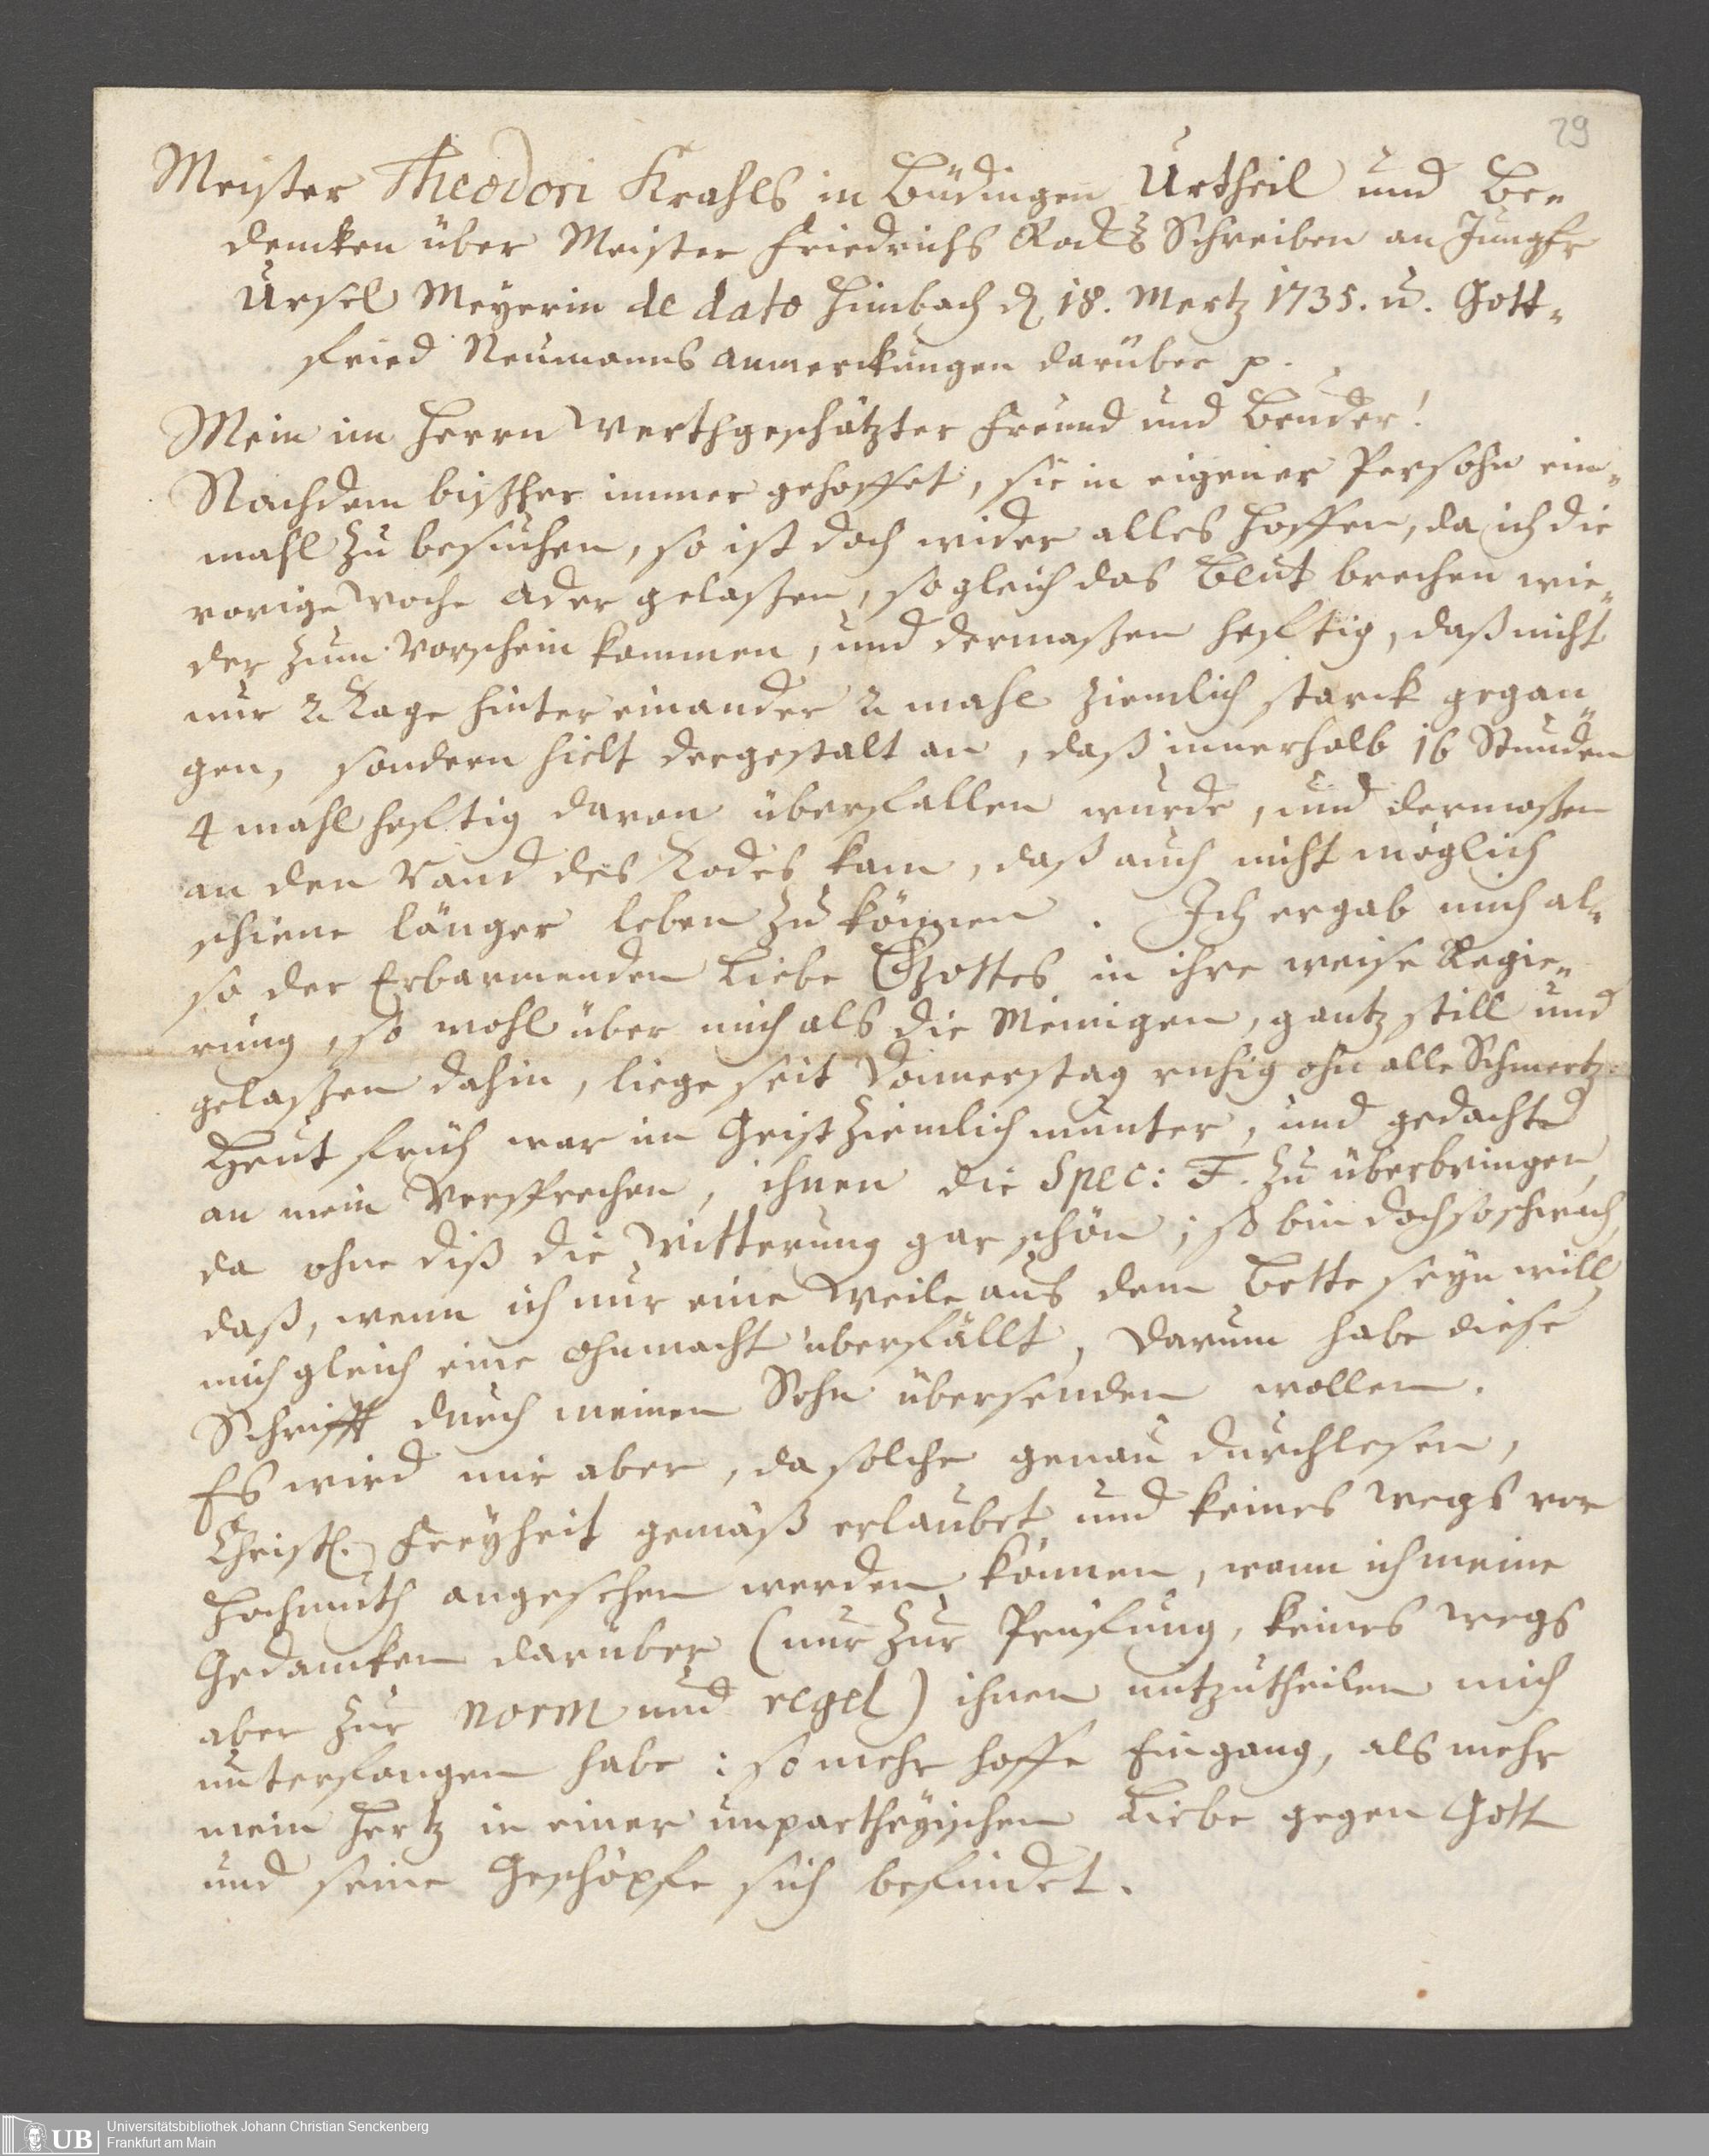 29
Meister Theodori Krahls in Büdingen Urtheil und Be„
dencken über Meister Friedrichs Rocks Schreiben an Jungfr
Ursel Meyerin de dato Himbach d. 18. Mertz 1735. u. Gott„
fried Neumanns anmerckungen darüber p.
Mein im Herrn Werthgeschätzter Freund und Bruder!
Nachdem bißher immer gehoffet, sie in eigener Persohn ein„
mahl zu besuchen, so ist doch wider alles Hoffen, da ich die
vorige Woche Ader gelaßen, sogleich das Blut brechen wie„
der zum Vorschein kommen, und dermaßen hefftig, daß nicht
nur 2 Tage hinter einander 2 mahl ziemlich starck gegan„
gen, sondern hielt dergestalt an, daß innerhalb 16 Stunden
4 mahl hefftig davon überfallen wurde, und dermaßen
an den Rand des Todes kam, daß auch nicht möglich
schiene länger leben zu können. Ich ergab mich al„
so der Erbarmenden Liebe Gottes in ihre weise Regie„
rung, so wohl über mich als die Meinigen, gantz still und
gelaßen dahin, liege seit Donnerstag ruhig ohn alle Schmertz.
Heut früh war im Geist ziemlich munter, und gedachte
an mein Versprechen, ihnen die Spec: F. zu überbringen,
da ohne diß die Witterung gar schön; so bin doch so schwach,
daß, wenn ich nur eine Weile aus dem Bette seyn will,
mich gleich eine Ohnmacht überfällt, Darum habe diese
Schrifft durch meinen Sohn übersenden wollen.
Es wird mir aber, da solche genau durchlesen,
Christl. Freyheit gemäß erlaubet und keines Wegs vor
Hochmuth angesehen werden können, wann ich meine
Gedancken darüber (nur zur Prüfung, keines Wegs
aber zur Norm und regel) ihnen mitzutheilen mich
unterfangen habe: so mehr hoffe Eingang, als mehr
mein Hertz in einer unpartheyischen Liebe gegen Gott
und seine Geschöpfe sich befindet.
UB
Universitätsbibliothek Johann Christian Senckenberg
Frankfurt am Main